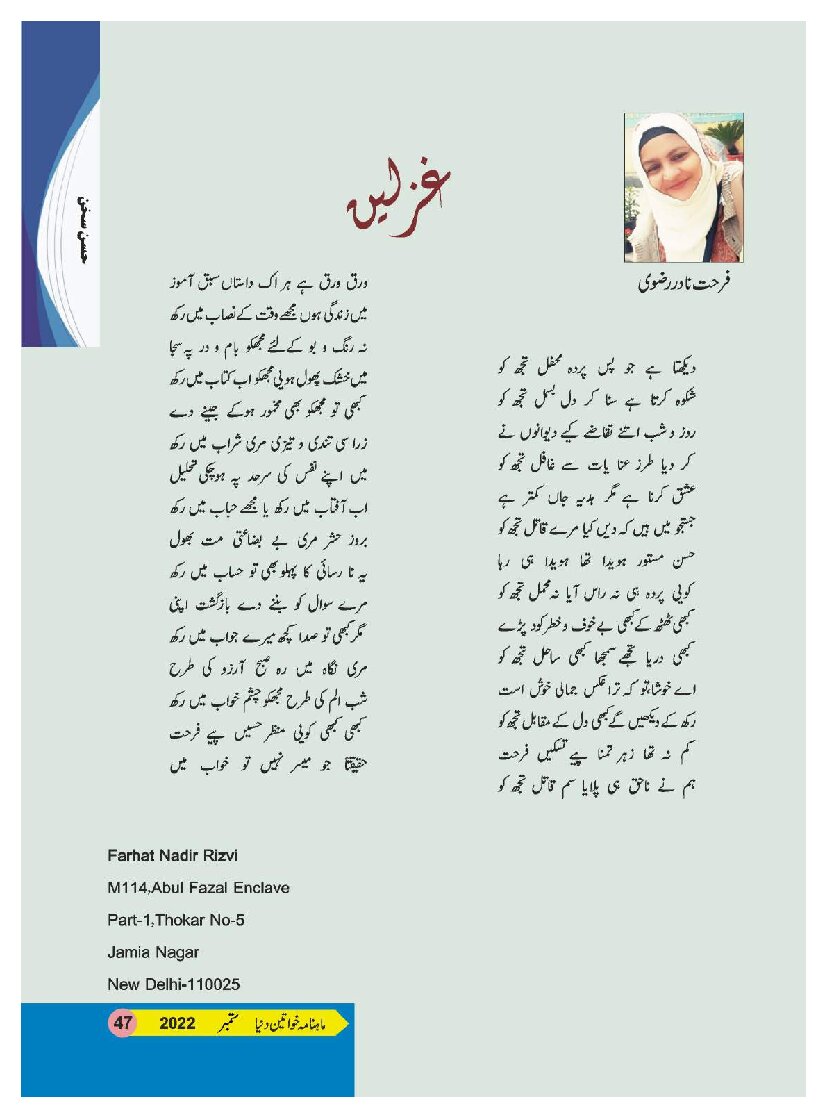 حسن سخن
غزلیں
فرحت نادر رضوی
دیکھتا ہے جو پس پردہ محفل تجھ کو
شکوہ کرتا ہے سنا کر دل بسمل تجھ کو
روز و شب اتنے تقاضے کیے دیوانوں نے
کر دیا طرز عنا یات سے غافل تجھ کو
عشق کرنا ہے مگر ہدیہ جاں کمتر ہے
جستجو میں ہیں کہ دیں کیا مرے قاتل تجھ کو
حسن مستور ہویدا تھا ہویدا ہی رہا
کوئی پردہ ہی نہ راس آیا نہ محمل تجھ کو
کبھی ٹھٹھ کے کبھی بے خوف و خطر کود پڑے
کبھی دریا تجھے سمجھا کبھی ساحل تجھ کو
اے خوشا تو کہ ترا عکس جمالی خوش است
رکھ کے دیکھیں گے کبھی دل کے مقابل تجھ کو
کم نہ تھا زہر تمنا پے تسکیں فرحت
ہم نے ناحق ہی پلایا سم قاتل تجھ کو
ورق ورق ہے ہر اک داستاں سبق آموز
میں زندگی ہوں مجھے وقت کے نصاب میں رکھ
نہ رنگ و بو کے لئے مجھکو بام و در پہ سجا
میں خشک پھول ہوئی مجھکو اب کتاب میں رکھ
کبھی تو مجھکو بھی مخمور ہوکے جینے دے
زرا سی تندی و تیزی مری شراب میں رکھ
میں اپنے نفس کی سرحد پہ ہوچکی تحلیل
اب آفتاب میں رکھ یا مجھے حباب میں رکھ
بروز حشر مری بے بضاعتی مت بھول
یہ نا رسائی کا پہلو بھی تو حساب میں رکھ
مرے سوال کو بننے دے بازگشت اپنی
مگر کبھی تو صدا کچھ میرے جواب میں رکھ
مری نگاہ میں رہ صبح آرزو کی طرح
شب الم کی طرح مجھکو چشم خواب میں رکھ
کبھی کبھی کوئی منظر حسیں پیے فرحت
حقیقتا جو میسر نہیں تو خواب میں
Farhat Nadir Rizvi
M114,Abul Fazal Enclave
Part-1,Thokar No-5
Jamia Nagar
New Delhi-110025
ماہنامہ خواتین دنیا ستمبر 2022 47